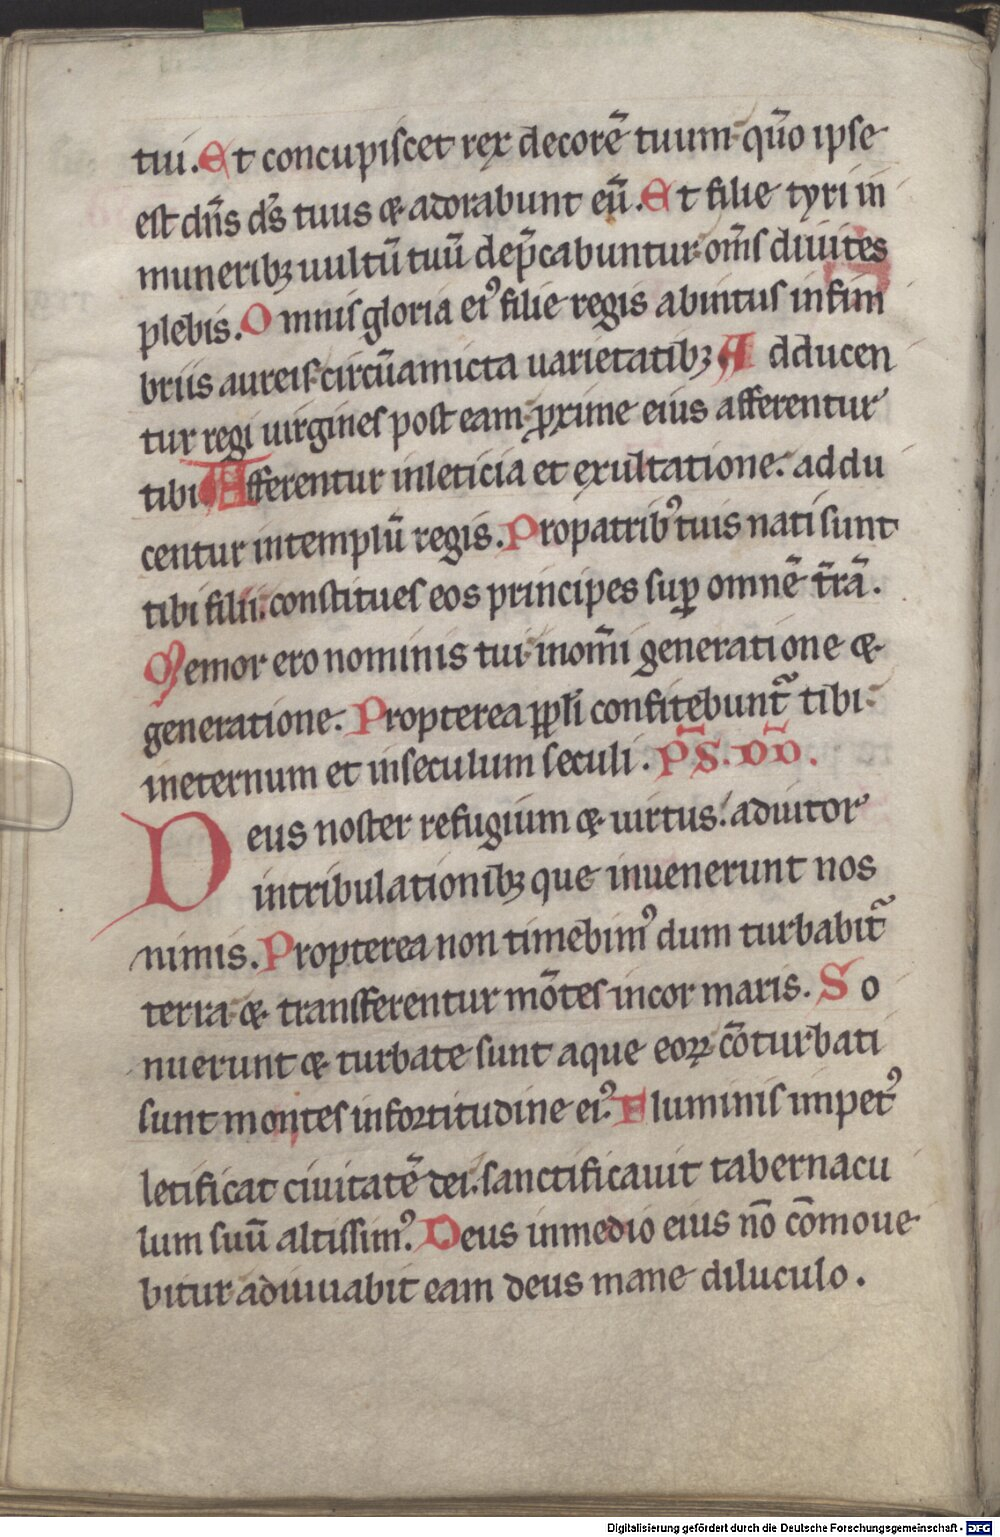 tui. Et concupiscet rex decorē tuum qm̄o ipse
est dn̄s ds̄ tuus & adorabunt eū. Et filie tyri in
muneribꝫ uultū tuū dep̄cabuntur om̄s diuites
plebis. Omnis gloria ei᾽ filie regis abintus infim
briis aureis circūamicta uarietatibꝫ. Adducen
tur regi uirgines post eam ꝓxime eius afferentur
tibi. Afferentur inleticia et exultatione. addu
centur intemplū regis. Propatrib᾽ tuis nati sunt
tibi filii. constitues eos principes suꝑ omnē tr̄rā.
Memor ero nominis tui inom̄i generatione &
generatione. Propterea ppl̄i confitebunt᷑ tibi
ineternum et inseculum seculi. P̄S. D̄D̄.
Deus noster refugium & uirtus. adiutor
intribulationibꝫ que inuenerunt nos
nimis. Propterea non timebim᾽ dum turbabit᷑
terra & transferentur mōtes incor maris. So
nuerunt & turbate sunt aque eoꝝ cōturbati
sunt montes infortitudine ei᾽. Fluminis impet᾽
letificat ciuitatē dei. sanctificauit tabernacu
lum suū altissim᾽. Deus inmedio eius nō cōmoue
bitur adiuuabit eam deus mane diluculo.
Digitalisierung gefördert durch die Deutsche Forschungsgemeinschaft - DFG